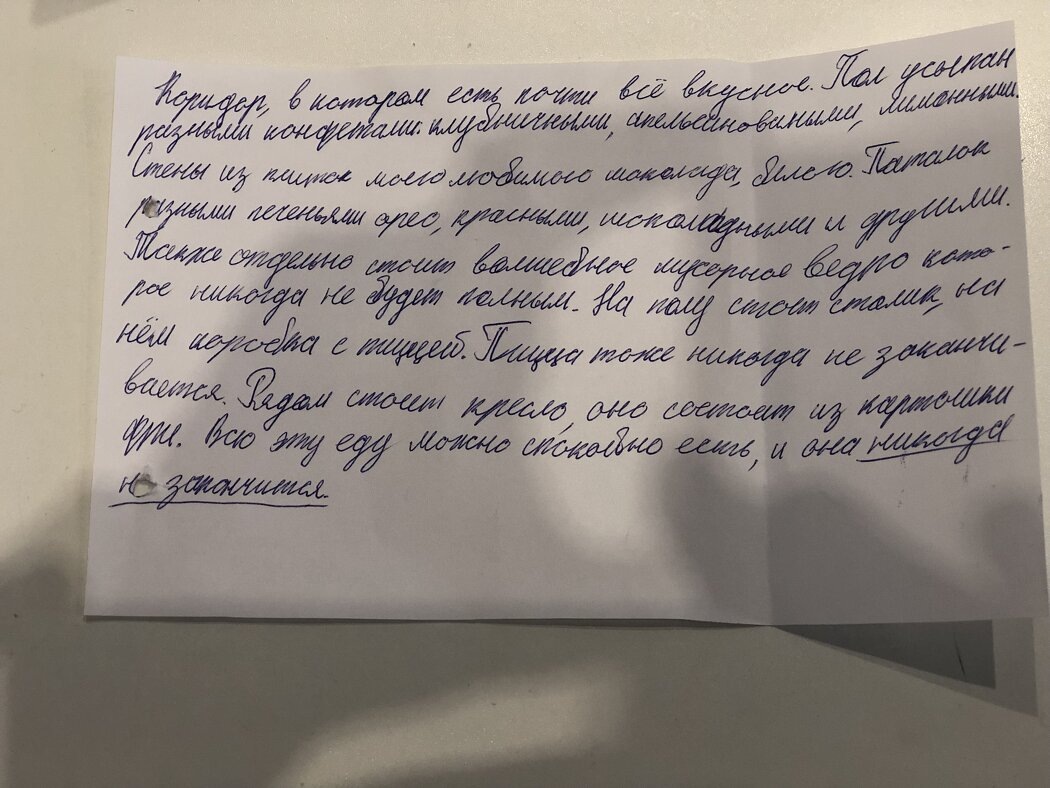 Коридор, в котором есть почти всё вкусное. Пол усыпан
разными конфетами: клубничными, апельсиновыми, лимонными.
Стены из плиток моего любимого шоколада, белого. Паталок
разными печеньями орео, красными, шоколадными и другими.
Также отдельно стоит волшебное мусорное ведро кото-
рое никогда не будет полным. На полу стоит столик, на
нём коробка с пиццей. Пицца тоже никогда не заканчи-
вается. Рядом стоит кресло, оно состоит из картошки
фри. Всю эту еду можно спокойно есть, и она никогда
не закончится.